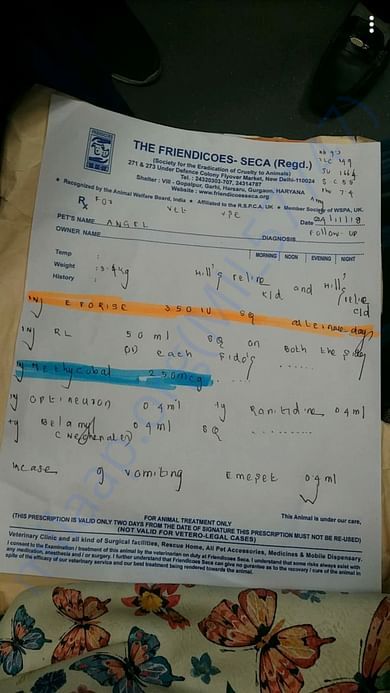 THE FRIENDICOES- SECA (Regd.)
(Society for the Eradication of Cruelty to Animals)
271 & 273 Under Defence Colony Flyover Market, New Delhi-110024
Tel.: 24320303-707, 24314787
Shelter : Vill - Gopalpur, Garhi, Harsaru, Gurgaon, HARYANA
Website : www.friendicoesseca.org
Recognized by the Animal Welfare Board, India * Affiliated to the R.S.P.C.A, UK * Member Society of WSPA, UK.
Rx For vet use
Date
PET'S NAME ANGEL
Follow-up
OWNER NAME DIAGNOSIS
MORNING NOON EVENING NIGHT
Temp :
Weight : 3.4 kg
History :
Hill's k/d and Hill's c/d
inj EPORISE 350 IU SQ alternate day
inj RL 50 ml SQ on Both the
each
Methycobal 250mcg
inj Optineuron 0.4 ml inj Ranitidine 0.4 ml
Belamyl 0.4 ml SQ
Incase of vomiting Emepet 0.4 ml
This Animal is under our care,
FOR ANIMAL TREATMENT ONLY
(THIS PRESCRIPTION IS VALID ONLY TWO DAYS FROM THE DATE OF SIGNATURE THIS PRESCRIPTION MUST NOT BE RE-USED)
(NOT VALID FOR VETERO-LEGAL CASES)
Veterinary Clinic and all kind of Surgical facilities, Rescue Home, All Pet Accessories, Medicines & Mobile Dispensary.
I consent to the Examination / treatment of this animal by the veterinarian on duty at Friendicoes Seca. I understand that some risks always exist with
any medication, anesthesia and / or surgery. I further understand that Friendicoes Seca can give no guarantee as to the recovery / cure of the animal in
spite of the efficacy of our veterinary service and our best treatment being rendered towards the animal.